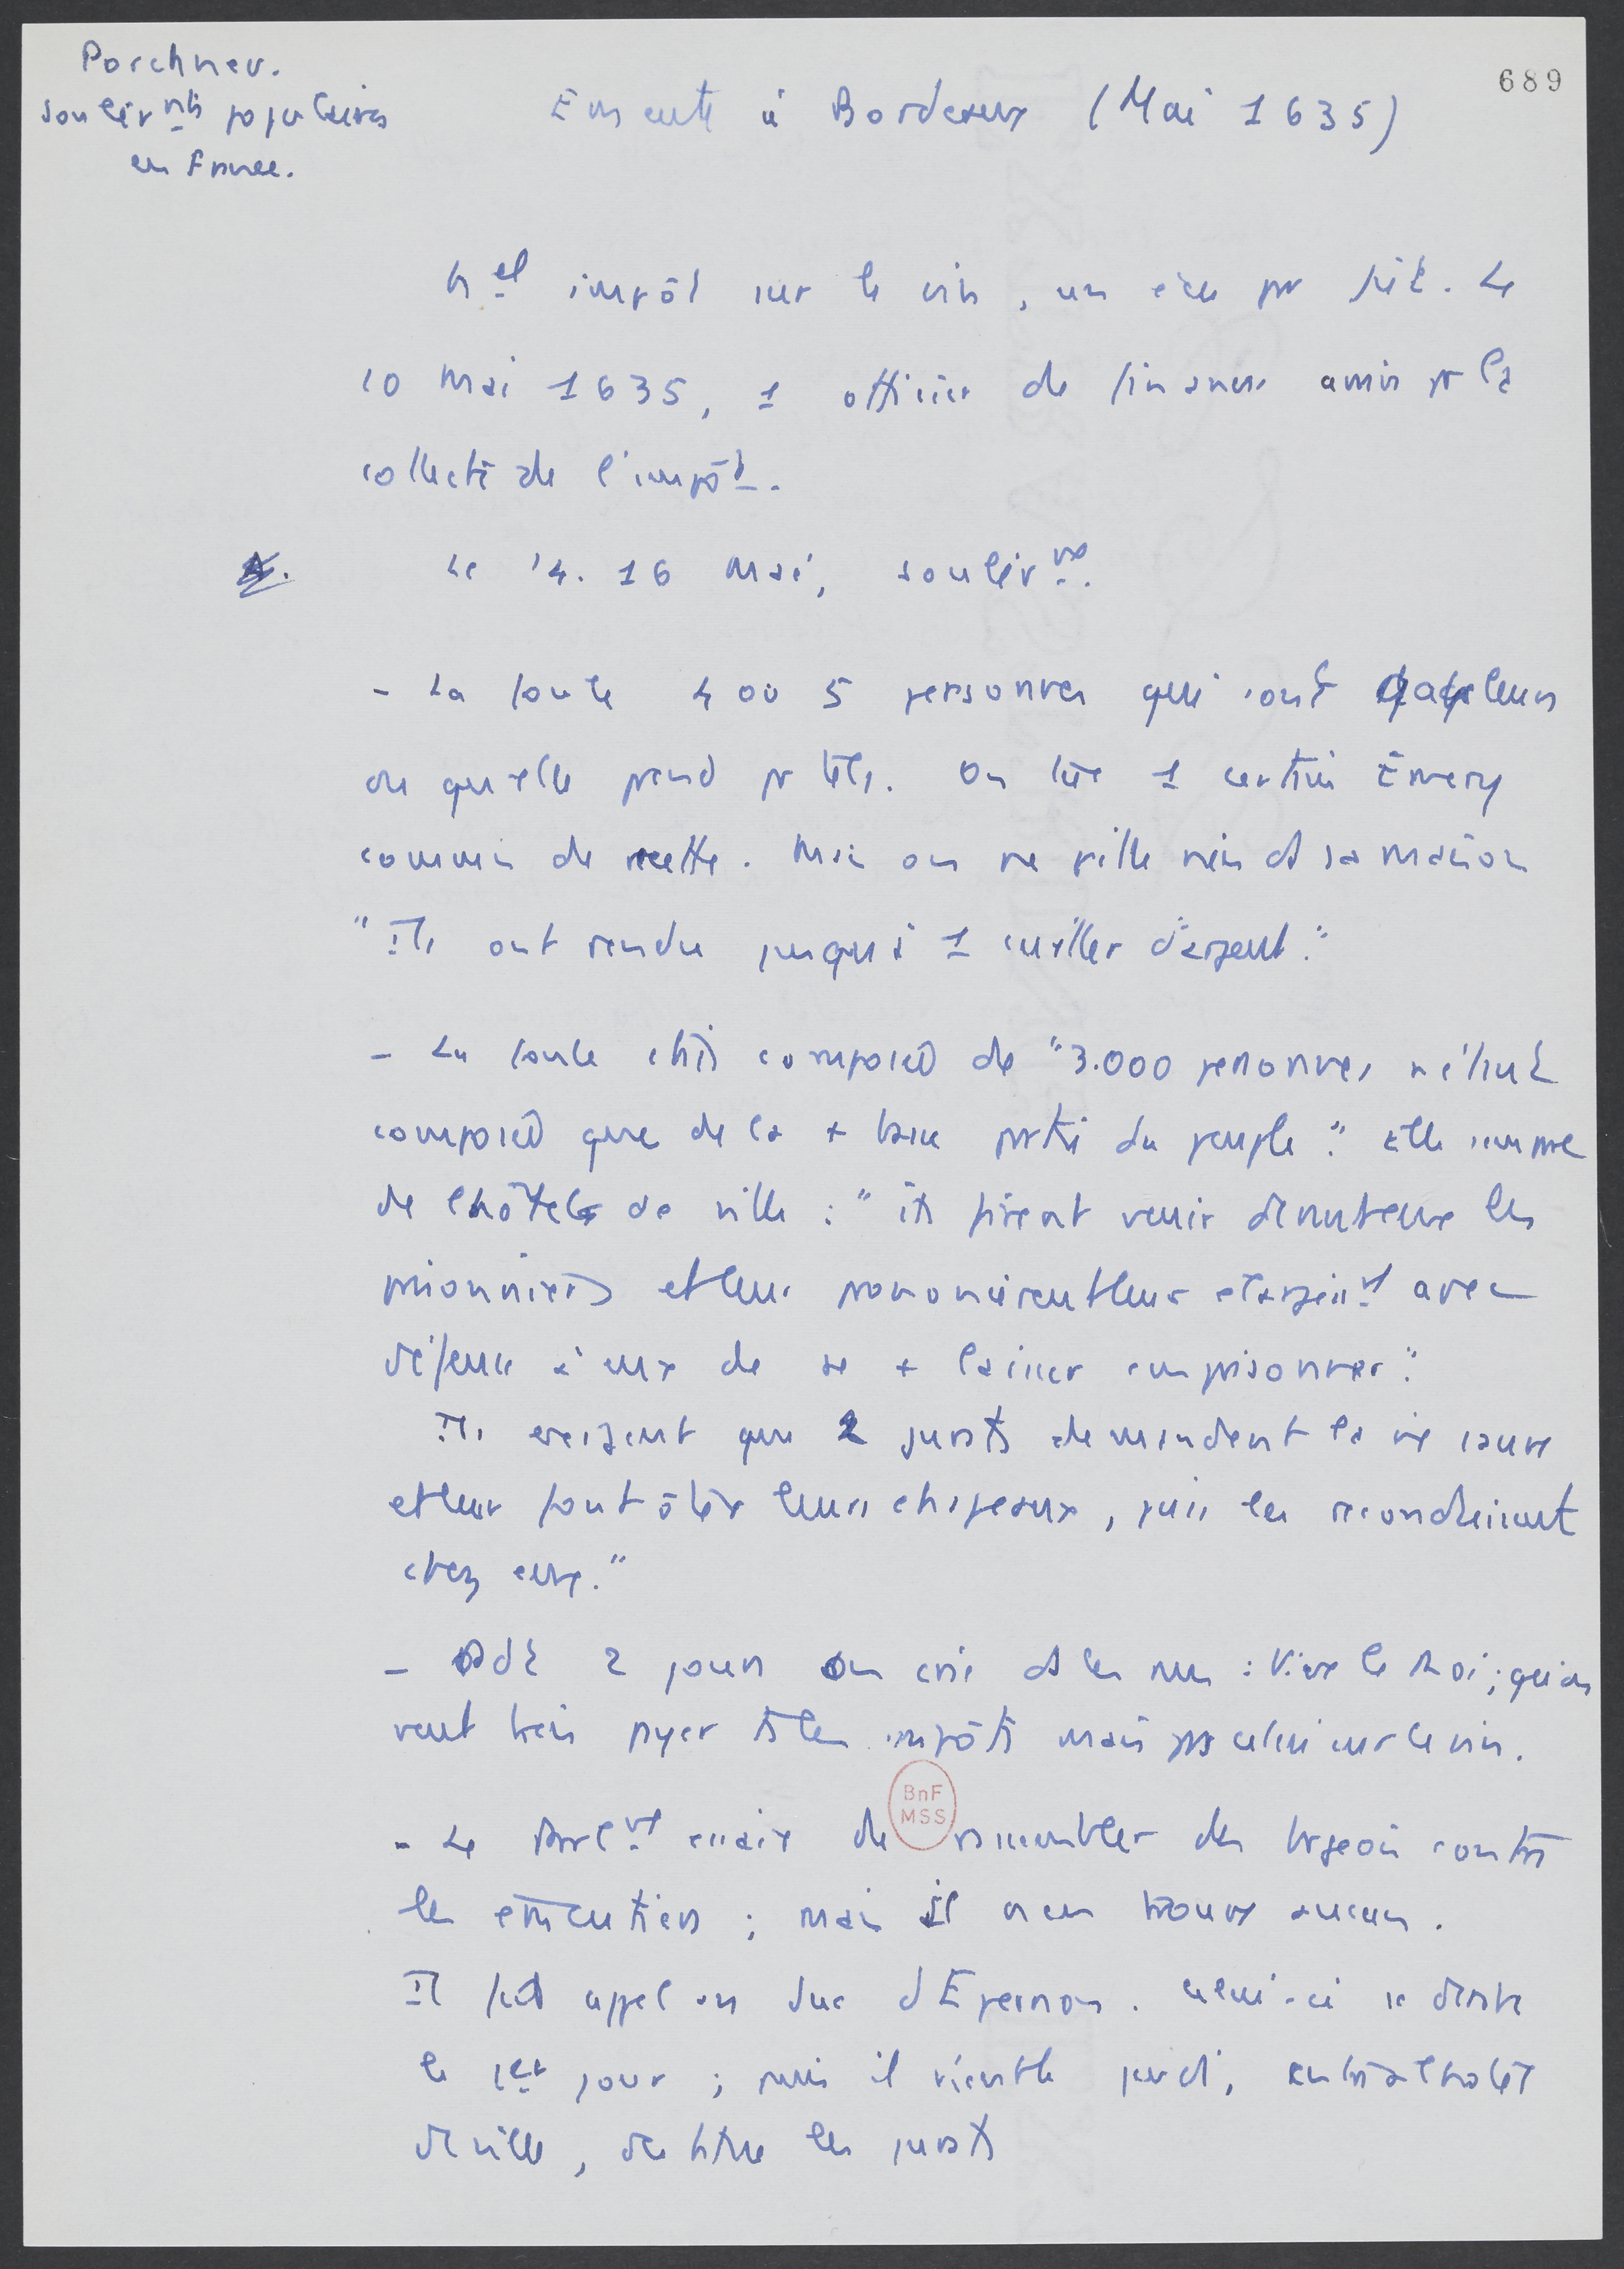 Porchnev.
soulèvnts populaires
en France.
689
Emeute à Bordeaux (Mai 1635)
Nel impôt sur le vin, un écu par pièt. Le
10 mai 1635, 1 officier de finances arrive pr la
collecte de l'impôt.
Le 14. 16 mai, soulèvnt.
- La foule 4 ou 5 personnes qui sont gabeleurs
ou qu'elle prend pr tels. On tue 1 certain Emery
commis de recette. Mais on ne pille rien ds sa maison
"Ils ont rendu jusqu'à 1 cuiller d'argent".
- La foule était composée de "3.000 personnes n'étant
composée que de la + basse partie du peuple". Elle s'empare
de l'hôtel de ville : "ils firent venir devant eux les
prisonniers et leur prononcèrent leur élargissnt avec
défense à eux de se + laisser emprisonner".
Ils exigent que 2 jurats demandent la vie sauve
et leur font ôter leurs chapeaux, puis les reconduisent
chez eux."
- Pdt 2 jours on crie ds les rues : Vive le Roi; qu'on
veut bien payer ts les impôts mais pas celui sur le vin.
BnF
MSS
- Le Parlnt essaie de rassembler des brgeois contre
les émeutiers ; mais il n'en trouve aucun.
Il fait appel au duc d'Epernon. Celui-ci se dérobe
le 1er jour ; puis il vient le jeudi, entre à l'hôtel
de ville, destitue les jurats